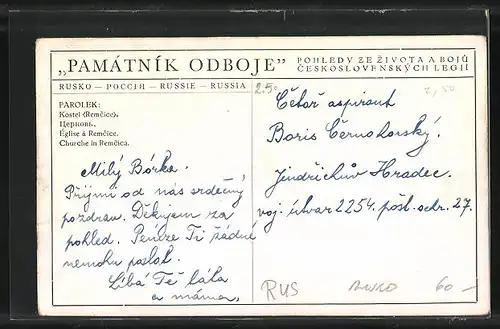 „PAMÁTNÍK ODBOJE"
POHLEDY ZE ŽIVOTA A BOJŮ
ČESKOSLOVENSKÝCH LEGIÍ
RUSKO — РОССІЯ — RUSSIE — RUSSIA
2.50
2,50
PAROLEK:
Kostel (Remčice).
Церковь.
Église á Remčice.
Churche in Remčica.
Četař aspirant
Boris Černohorský.
Jindřichův Hradec.
voj. útvar 2254. pošt. schr. 27.
Milý Bórka.
Přijmi od nás srdečný
pozdrav. Děkujem za
pohled. Peníze Ti žádné
nemohu poslat.
Líbá Tě táta
a máma.
RUS
60 –